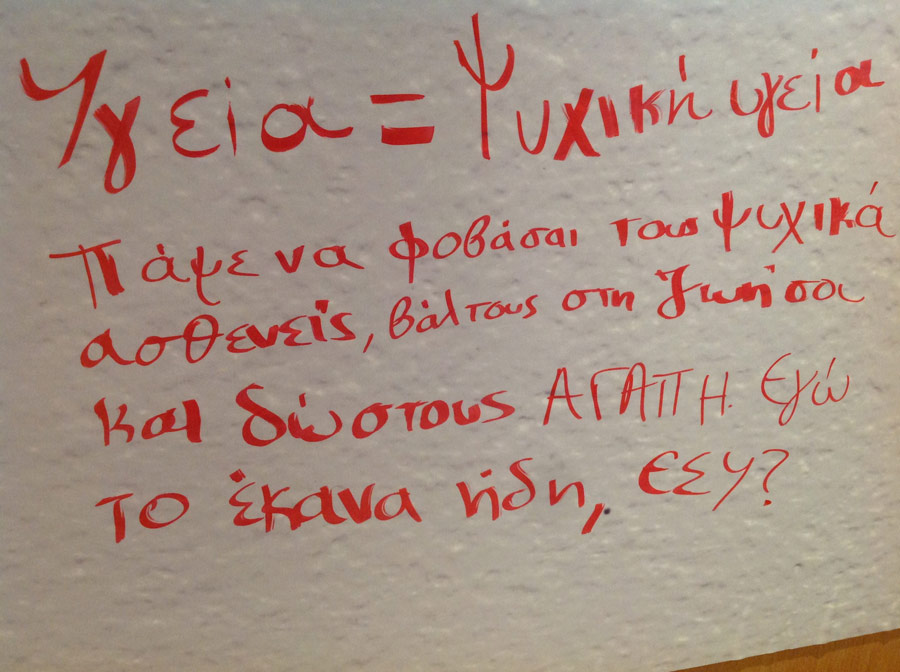 Υγεία = Ψυχική υγεία
Πάψε να φοβάσαι τους ψυχικά
ασθενείς, βάλτους στη ζωή σου
και δώστους ΑΓΑΠΗ. Εγώ
το έκανα ήδη, ΕΣΥ?